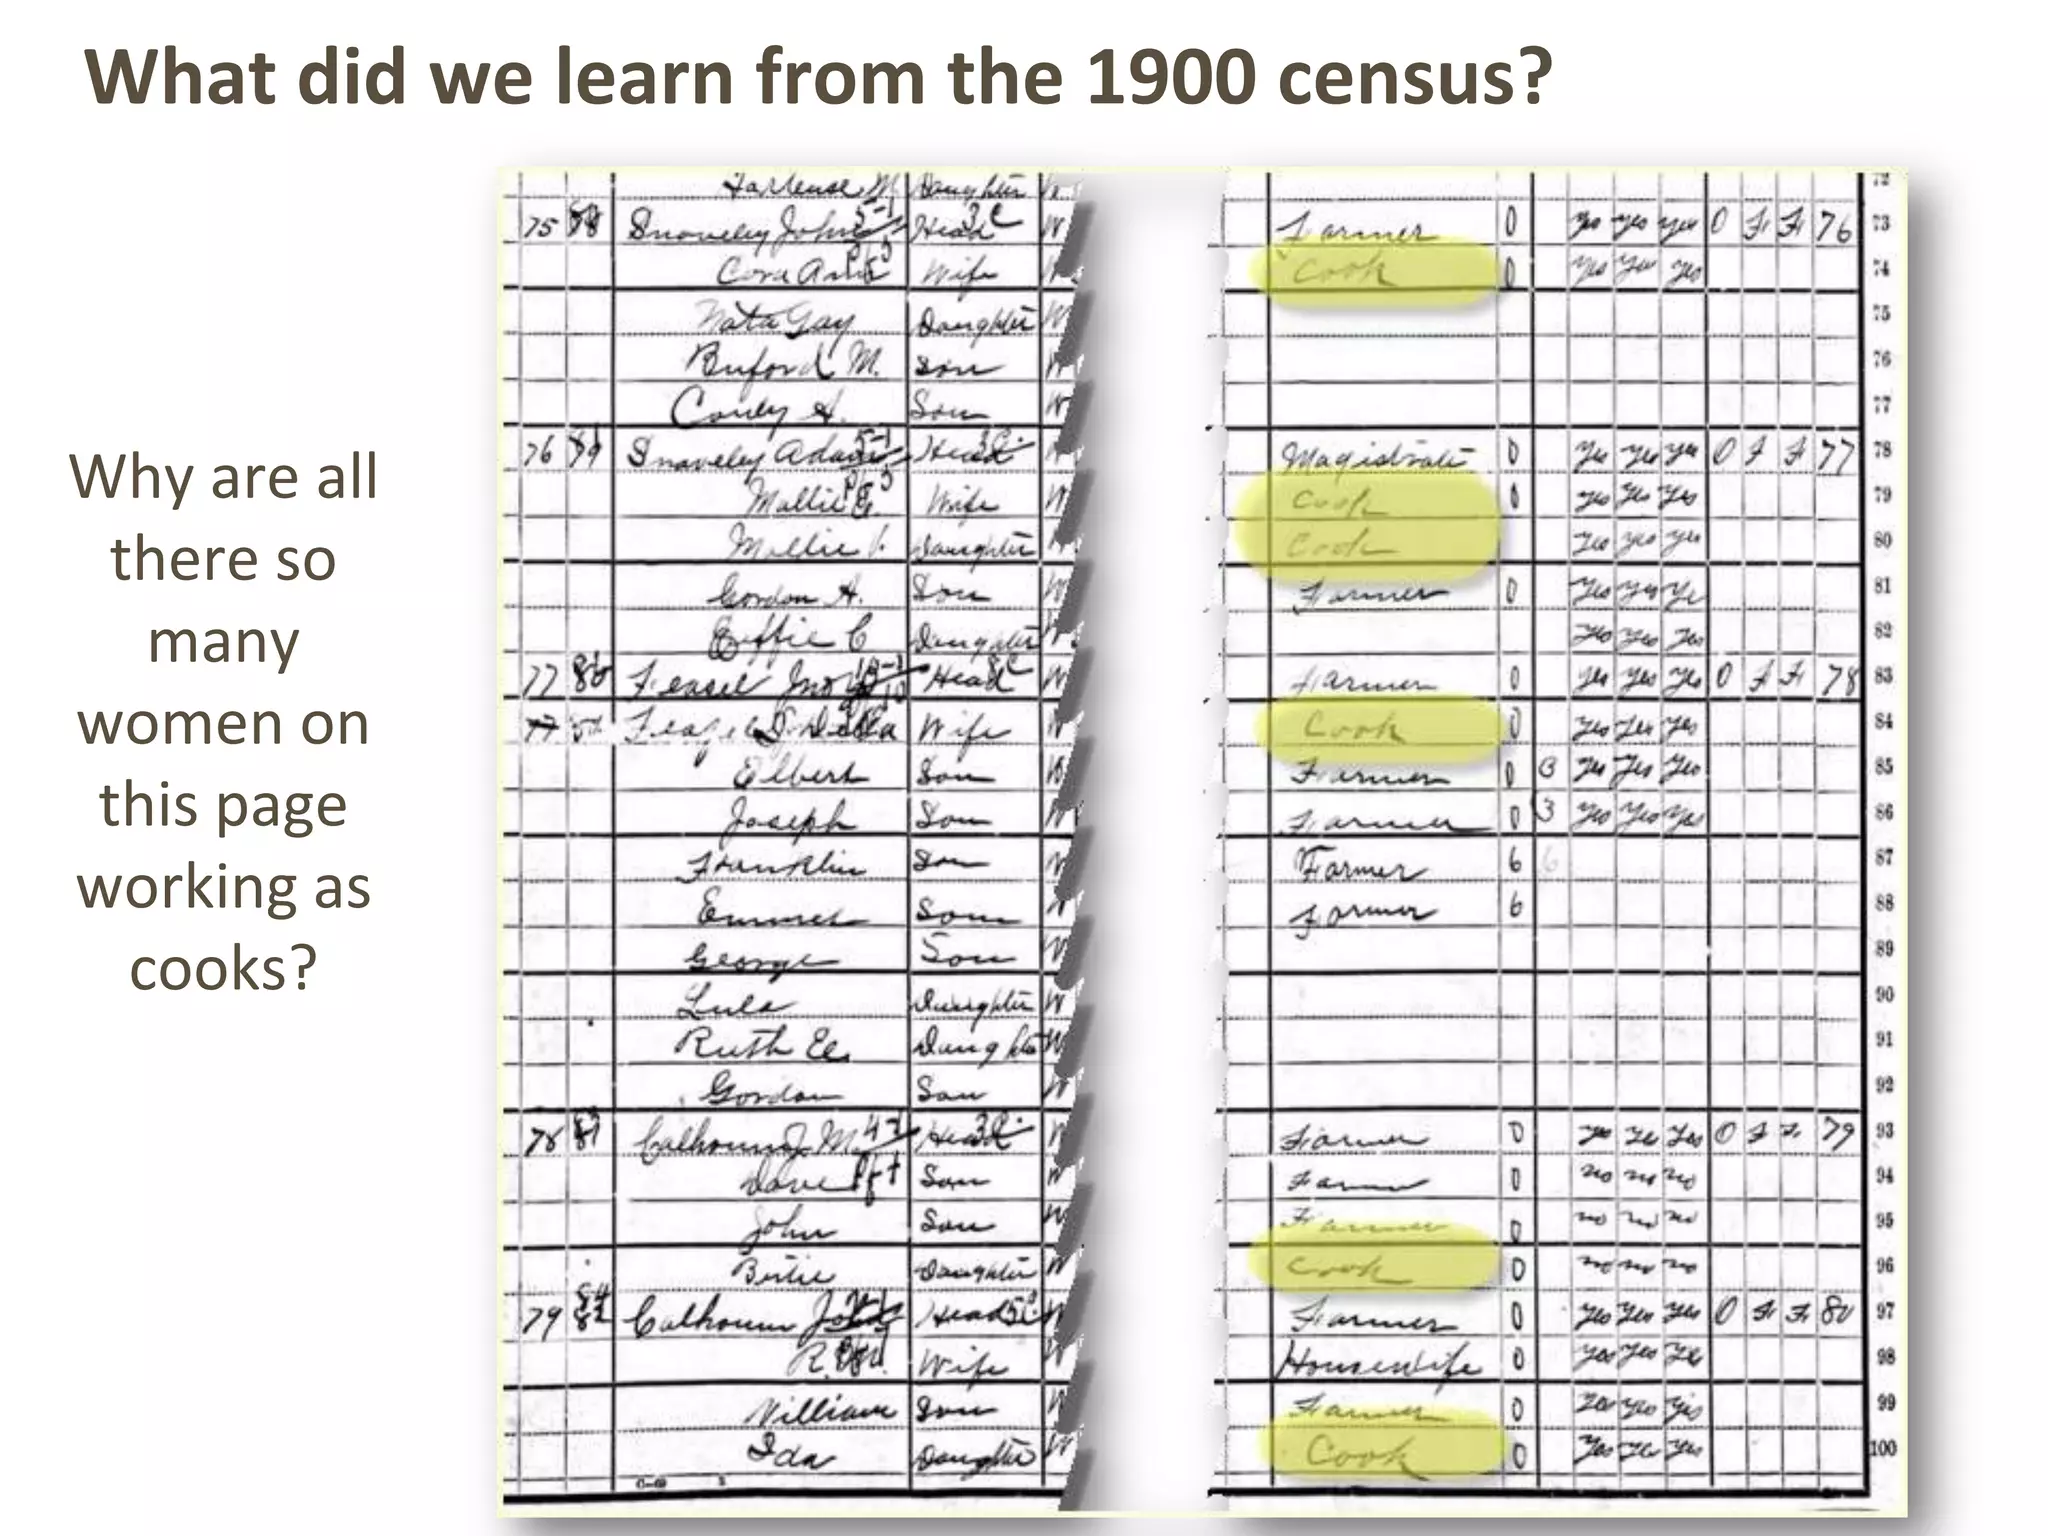 What did we learn from the 1900 census?
Why are all
there so
many
women on
this page
working as
cooks?
Daughter 72
75 Snaveley John Head W Farmer 0 yes yes yes O F F 76 73
Cora Wife Cook 0 yes yes yes 74
Nata Gay Daughter W 75
Buford M. Son W 76
Conley H. Son W 77
76 Snaveley Adam Head Magistrate 0 yes yes yes O F F 77 78
Mollie Wife W Cook 0 yes yes yes 79
Mollie V. Daughter Cook yes yes yes 80
Gordon H. Son W Farmer 0 yes yes ye 81
Effie C Daughter yes yes yes 82
77 Feasel Jno Head W Farmer 0 yes yes yes O F F 78 83
Della Wife W Cook 0 yes yes yes 84
Elbert Son Farmer 0 3 yes yes yes 85
Joseph Son W Farmer 0 3 yes yes yes 86
Franklin Son W Farmer 6 6 87
Emmet Son Farmer 6 88
George Son W 89
Lula Daughter W 90
Ruth E. Daughter W 91
Gordon Son W 92
78 Calhoun J. M. Head W Farmer 0 yes yes yes O F F 79 93
Dave Son W Farmer 0 no no no 94
John Son W Farmer 0 no no no 95
Birtie Daughter W Cook 0 no no no 96
79 Calhoun John Head W Farmer 0 yes yes yes O F F 80 97
R. Wife W Housewife 0 yes yes yes 98
William Son W Farmer 0 yes yes yes 99
Ida Daughter W Cook 0 yes yes yes 100